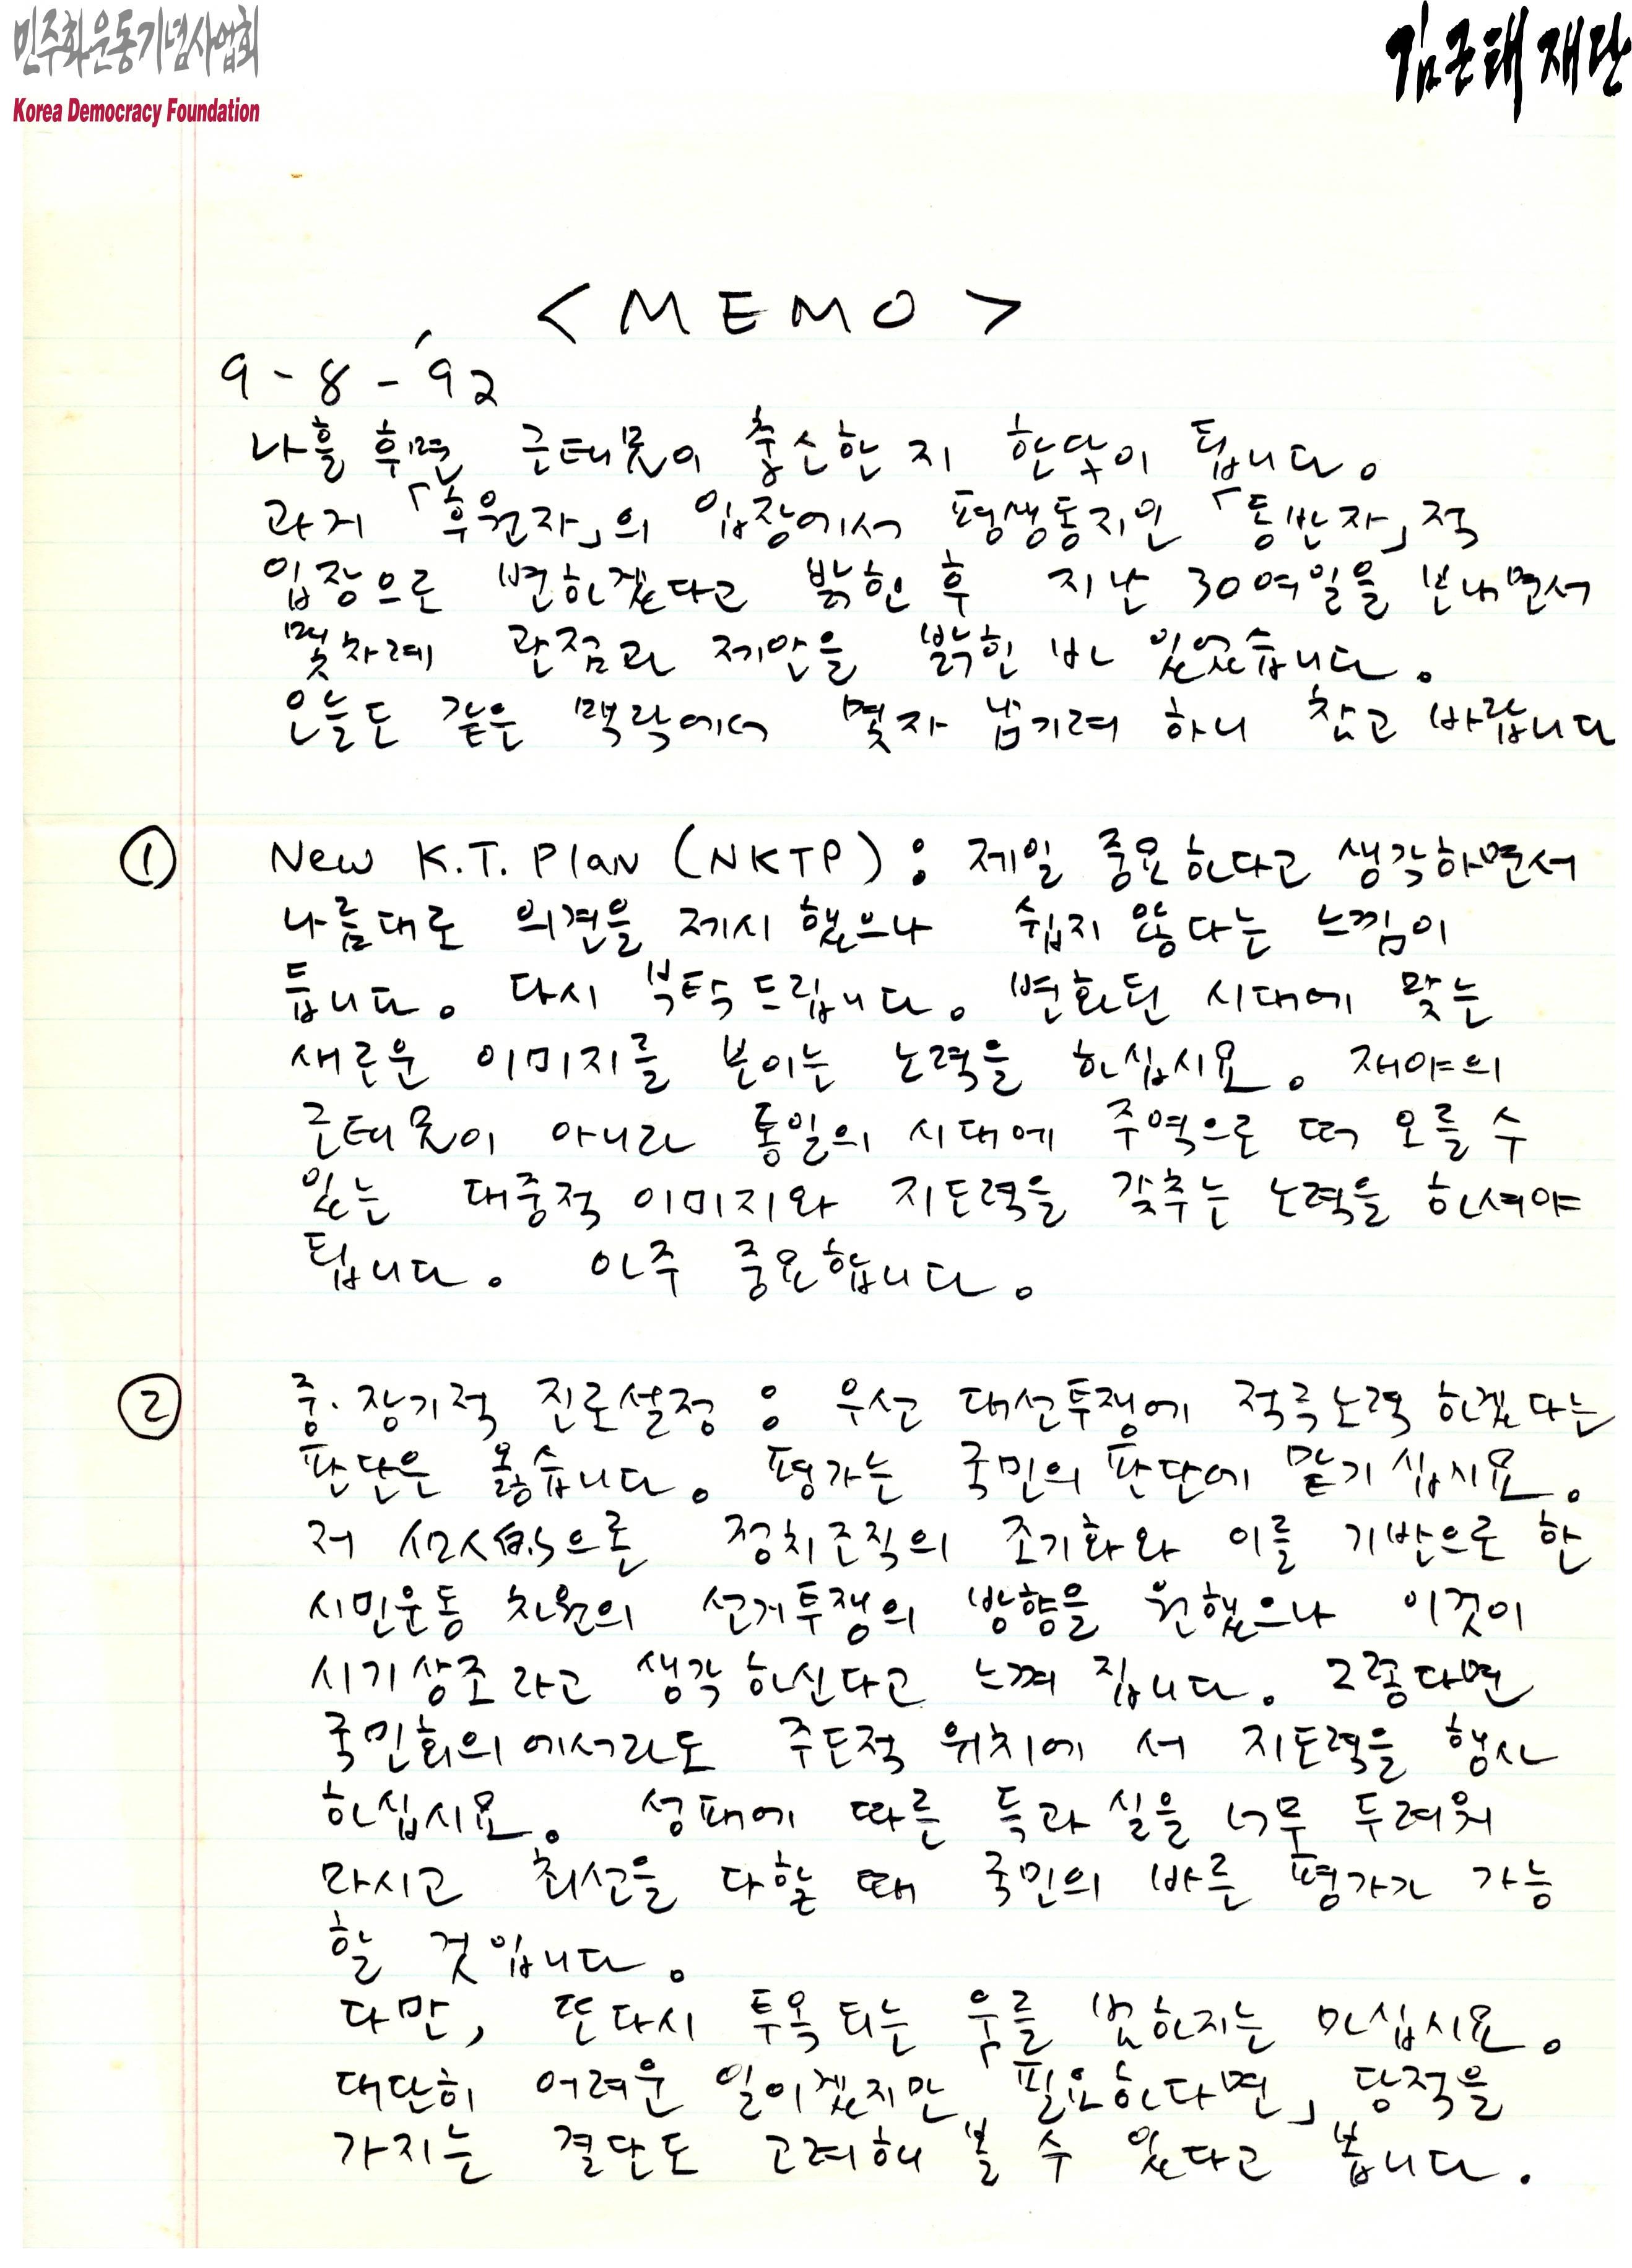 민주화운동기념사업회
Korea Democracy Foundation
김근태재단
<MEMO>
9-8-'92
나흘 후면 근태兄이 출소한 지 한달이 됩니다.
과거 「후원자」의 입장에서 평생동지인 「동반자」적
입장으로 변하겠다고 밝힌 후 지난 30여일을 보내면서
몇차례 관점과 제안을 밝힌 바 있었습니다.
오늘도 같은 맥락에서 몇자 남기려 하니 참고 바랍니다
① New K.T. Plan (NKTP) : 제일 중요하다고 생각하면서
나름대로 의견을 제시 했으나 쉽지 않다는 느낌이
듭니다. 다시 부탁드립니다. 변화된 시대에 맞는
새로운 이미지를 보이는 노력을 하십시요. 재야의
근태兄이 아니라 통일의 시대에 주역으로 떠 오를 수
있는 대중적 이미지와 지도력을 갖추는 노력을 하셔야
됩니다. 아주 중요합니다.
② 중·장기적 진로설정 : 우선 대선투쟁에 적극노력 하겠다는
판단은 옳습니다. 평가는 국민의 판단에 맡기십시요.
저 개인的으론 정치조직의 조기화와 이를 기반으로 한
시민운동 차원의 선거투쟁의 방향을 원했으나 이것이
시기상조라고 생각하신다고 느껴 집니다. 그렇다면
국민회의에서라도 주도적 위치에 서 지도력을 행사
하십시요. 성패에 따른 득과 실을 너무 두려워
마시고 최선을 다할 때 국민의 바른 평가가 가능
할 것입니다.
다만, 또다시 투옥되는 愚를 범하지는 마십시요.
대단히 어려운 일이겠지만 「필요하다면」 당적을
가지는 결단도 고려해 볼 수 있다고 봅니다.